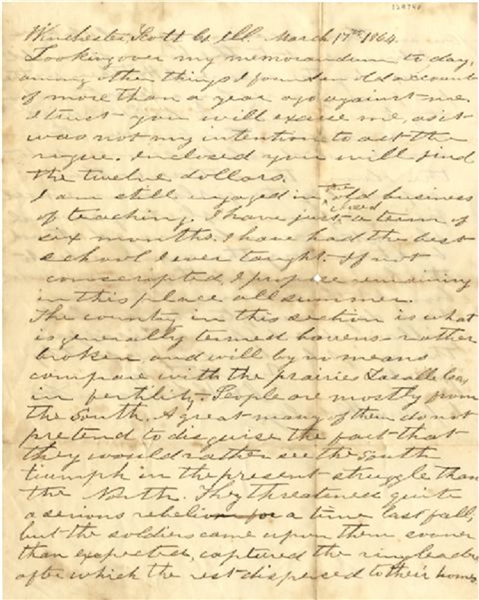 Winchester, Scott Co Ill. March 17th 1864.
Looking over my memorandum to day,
among other things I found an old account
of more than a year ago against me.
I trust you will excuse me, as it
was not my intention to act the
rogue. Inclosed you will find
the twelve dollars.
I am still engaged in the old business
of teaching. I have just closed a term of
six months. I have had the best
school I ever tought. If not
conscripted, I propose remaining
in this place all summer.
The country in this section is what
is generally termed barens - rather
broken and will by no means
compare with the prairies Lasalle Co
in fertility. People are mostly from
the South. A great many of them do not
pretend to disguise the fact that
they would rather see the South
triumph in the present struggle than
the North. They threatened quite
a serious rebelion for a time last fall,
but the soldiers came upon them sooner
than expected, captured the ringleaders
after which the rest dispersed to their homes